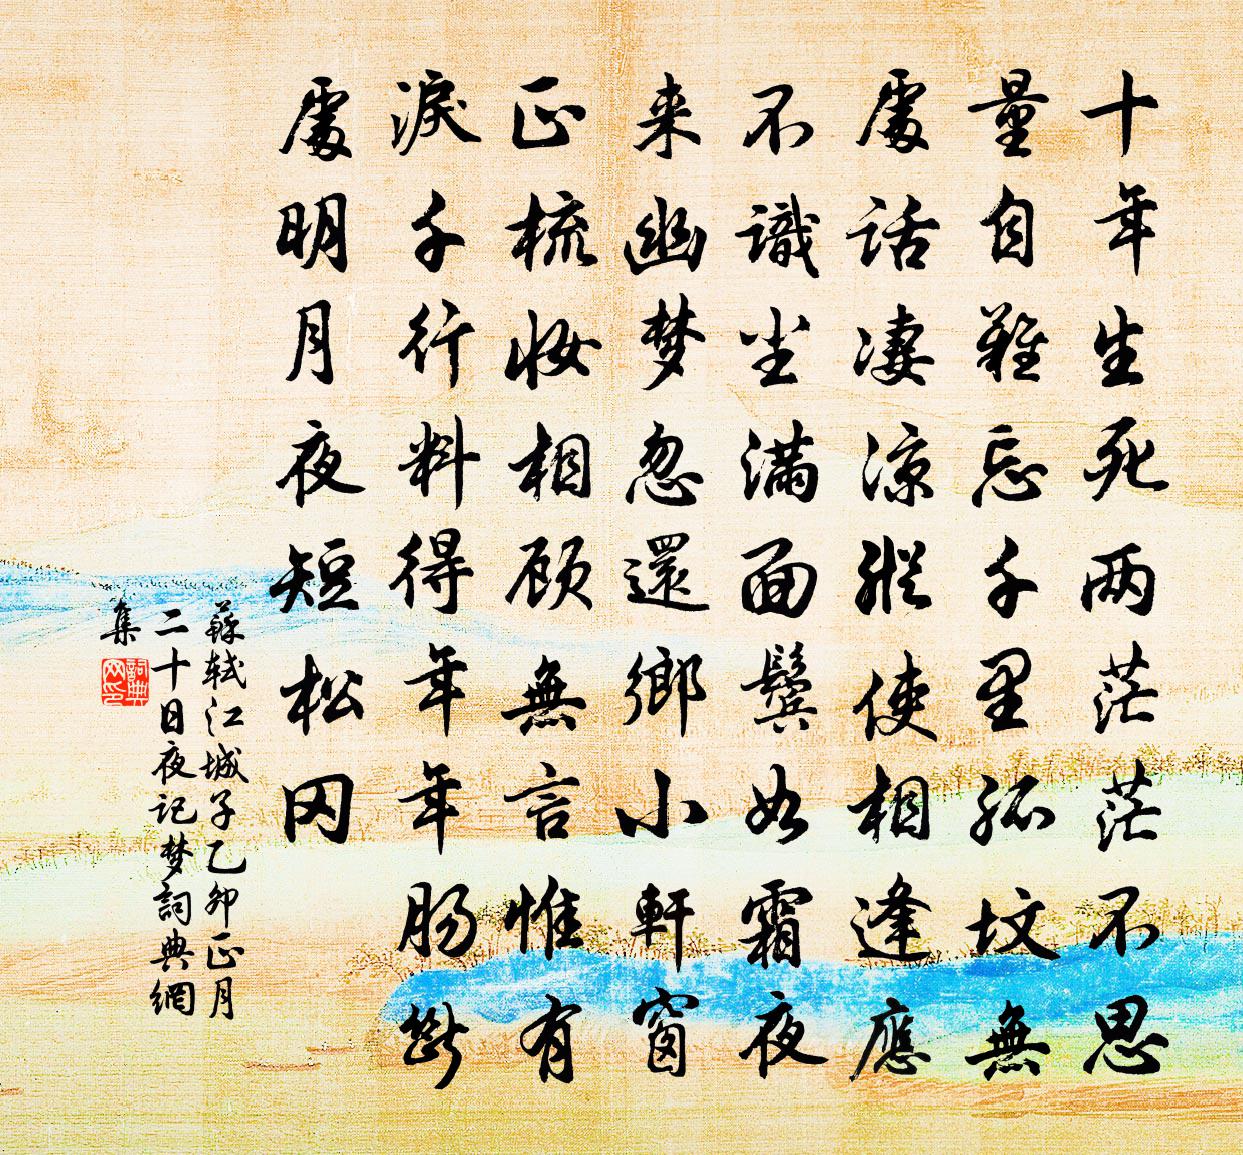 十年生死两茫茫不思
量自難忘千里孤坟無
處話凄凉縱使相逢應
不識尘满面鬓如霜夜
来幽梦忽還鄉小軒窗
正梳妆相顾無言惟有
淚千行料得年年肠斷
處明月夜短松冈
蘇轼江城子乙卯正月
二十日夜记梦詞典網
集
詞典
网印